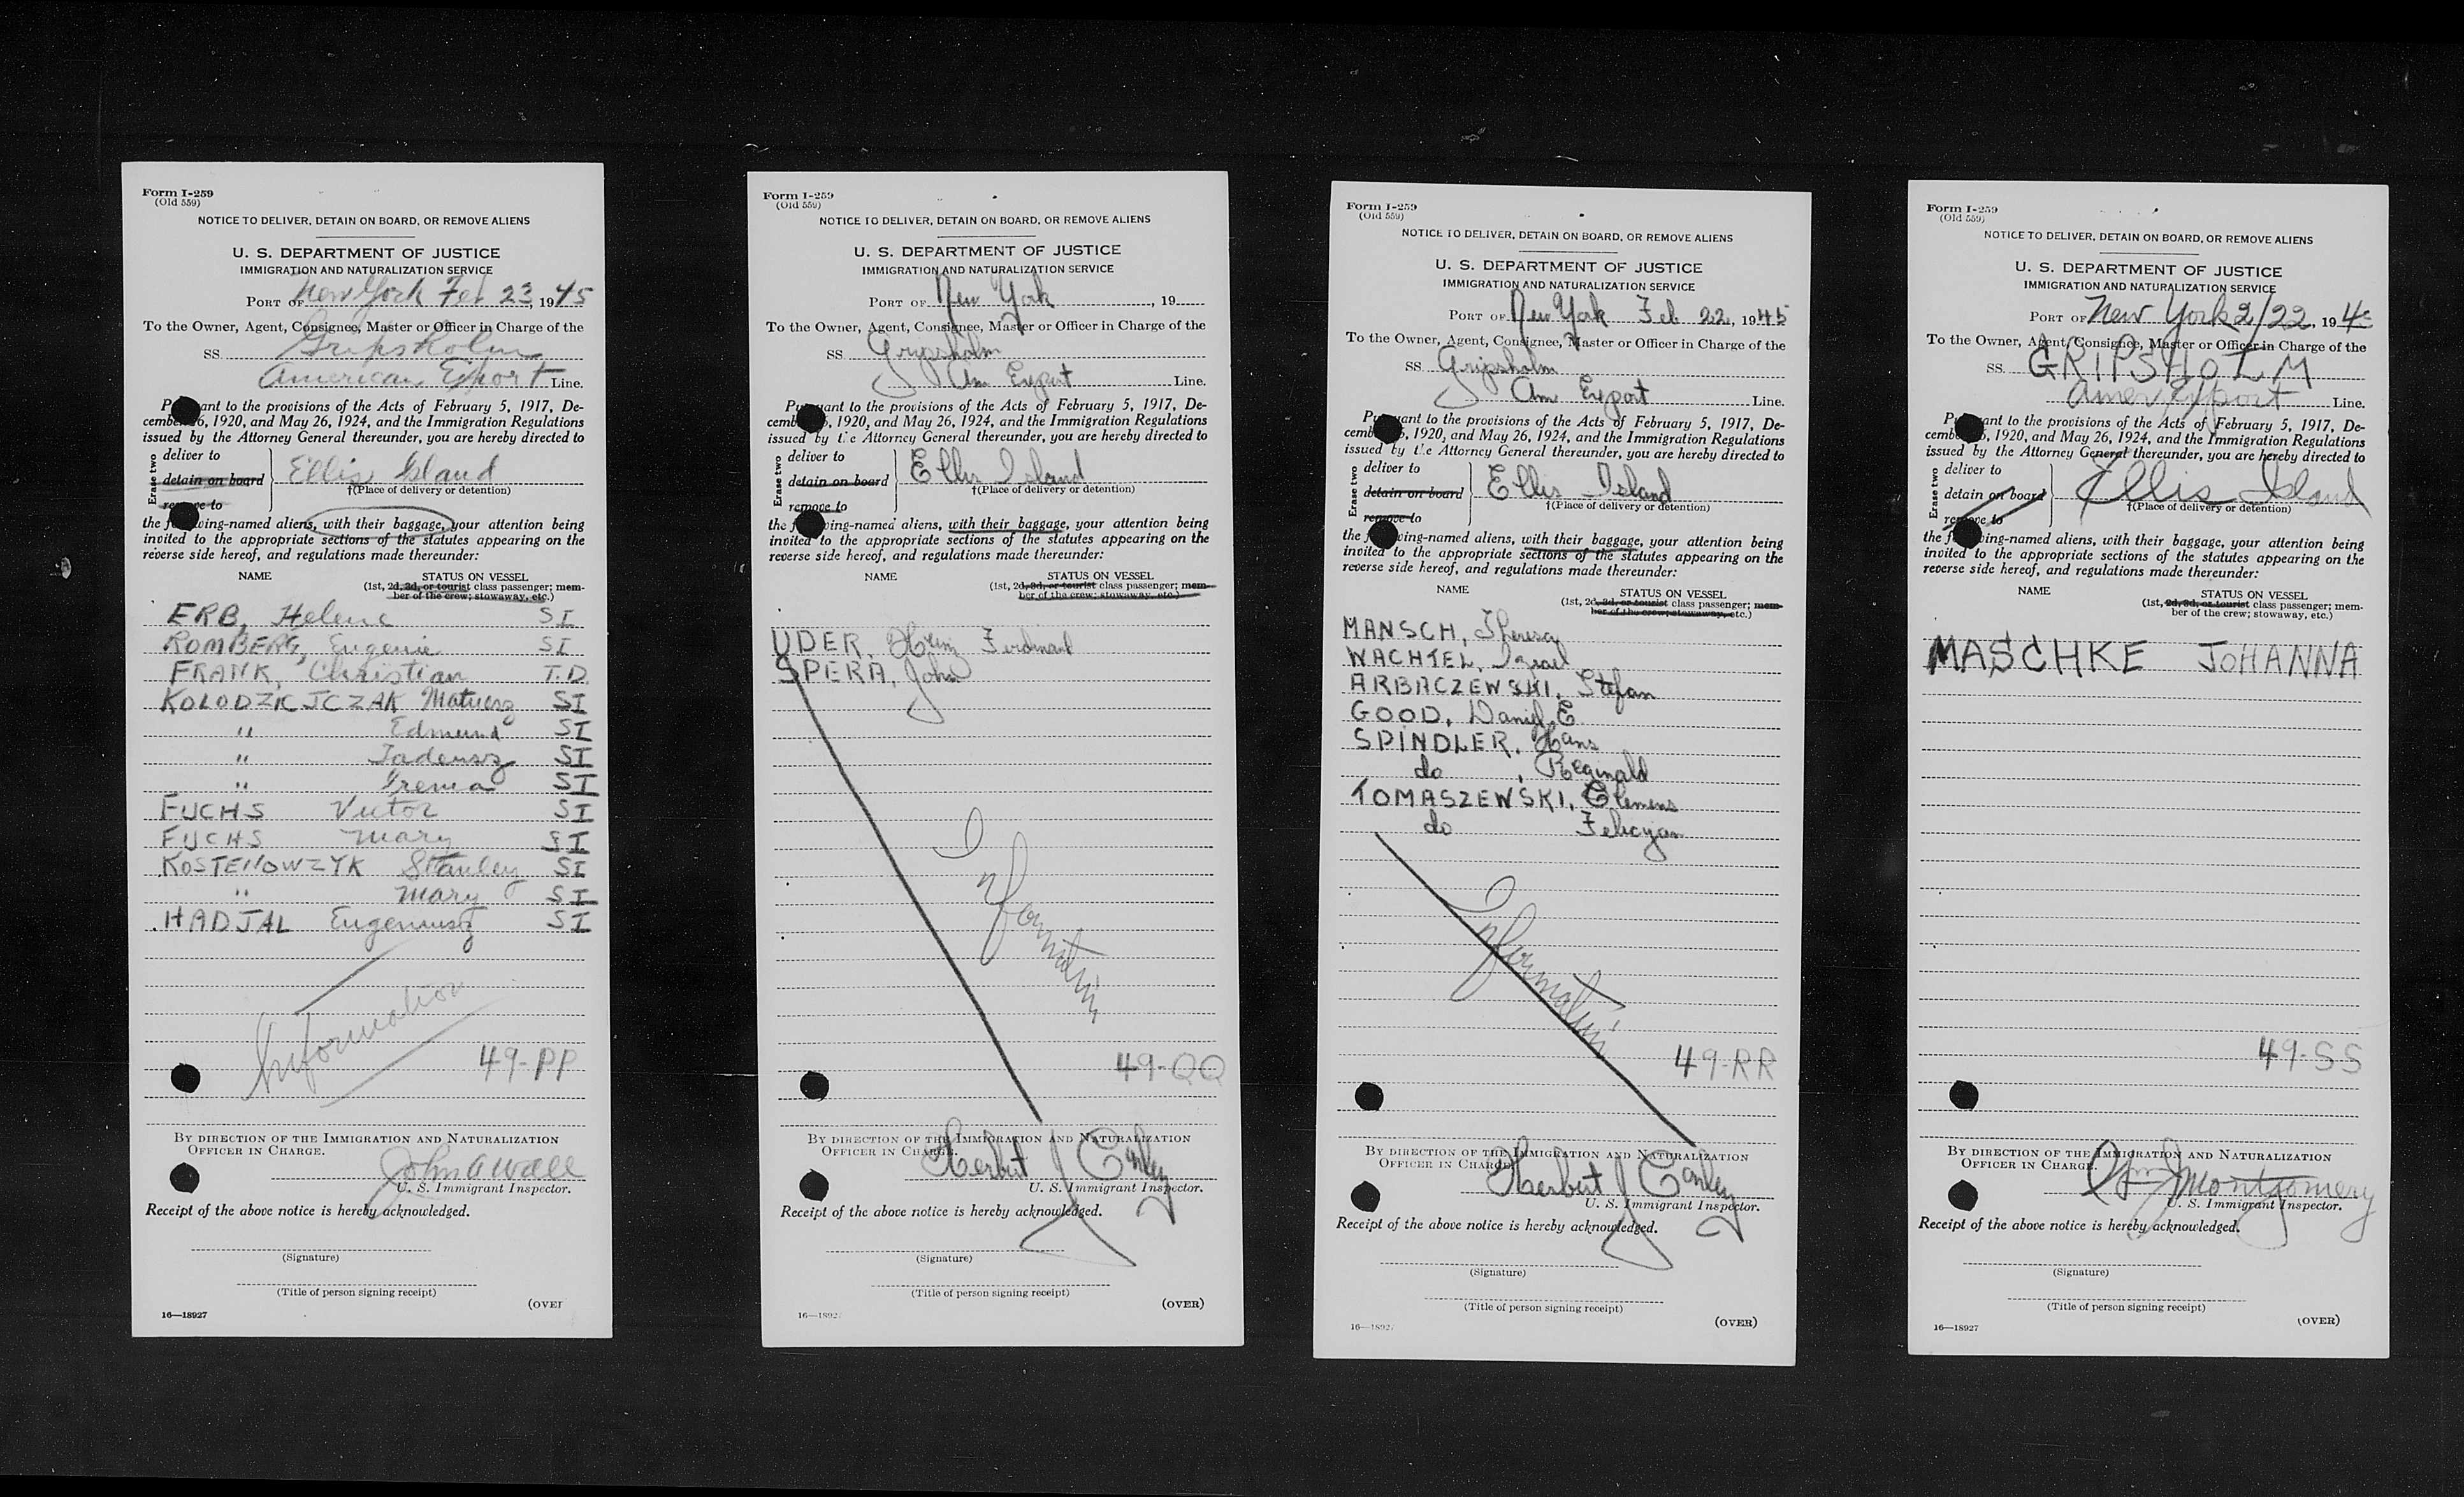 Form I-259
(Old 559)
NOTICE TO DELIVER, DETAIN ON BOARD, OR REMOVE ALIENS
U. S. DEPARTMENT OF JUSTICE
IMMIGRATION AND NATURALIZATION SERVICE
PORT OF New York Feb 23, 1945
To the Owner, Agent, Consignee, Master or Officer in Charge of the
SS. Gripsholm
American Export Line.
Pursuant to the provisions of the Acts of February 5, 1917, De-
cember 26, 1920, and May 26, 1924, and the Immigration Regulations
issued by the Attorney General thereunder, you are hereby directed to
Erase two
deliver to
detain on board
remove to
Ellis Island
†(Place of delivery or detention)
the following-named aliens, with their baggage, your attention being
invited to the appropriate sections of the statutes appearing on the
reverse side hereof, and regulations made thereunder:
NAME STATUS ON VESSEL
(1st, 2d, 3d, or tourist class passenger; mem-
ber of the crew; stowaway, etc.)
ERB, Helene SI
ROMBERG, Eugenie SI
FRANK, Christian T.D.
KOLODZICJCZAK Matuesz SI
" Edmund SI
" Tadeusz SI
" Irena SI
FUCHS Victor SI
FUCHS Mary SI
KOSTENOWZYK Stanley SI
" Mary SI
HADJAL Eugeniusz SI
Information
49-PP
BY DIRECTION OF THE IMMIGRATION AND NATURALIZATION
OFFICER IN CHARGE.
John A Wall
U. S. Immigrant Inspector.
Receipt of the above notice is hereby acknowledged.
(Signature)
(Title of person signing receipt)
16—18927 (OVER
Form I-259
(Old 559)
NOTICE TO DELIVER, DETAIN ON BOARD, OR REMOVE ALIENS
U. S. DEPARTMENT OF JUSTICE
IMMIGRATION AND NATURALIZATION SERVICE
PORT OF New York, 19
To the Owner, Agent, Consignee, Master or Officer in Charge of the
SS Gripsholm
Am Export Line.
Pursuant to the provisions of the Acts of February 5, 1917, De-
cember 26, 1920, and May 26, 1924, and the Immigration Regulations
issued by the Attorney General thereunder, you are hereby directed to
Erase two
deliver to
detain on board
remove to
Ellis Island
†(Place of delivery or detention)
the following-named aliens, with their baggage, your attention being
invited to the appropriate sections of the statutes appearing on the
reverse side hereof, and regulations made thereunder:
NAME STATUS ON VESSEL
(1st, 2d, 3d, or tourist class passenger; mem-
ber of the crew; stowaway, etc.)
UDER, Heinz Ferdinand
SPERA, John
Information
49-QQ
BY DIRECTION OF THE IMMIGRATION AND NATURALIZATION
OFFICER IN CHARGE.
Herbert J Conley
U. S. Immigrant Inspector.
Receipt of the above notice is hereby acknowledged.
(Signature)
(Title of person signing receipt)
16—1892 (OVER)
Form I-259
(Old 559)
NOTICE TO DELIVER, DETAIN ON BOARD, OR REMOVE ALIENS
U. S. DEPARTMENT OF JUSTICE
IMMIGRATION AND NATURALIZATION SERVICE
PORT OF New York Feb 22, 1945
To the Owner, Agent, Consignee, Master or Officer in Charge of the
SS Gripsholm
Am Export Line.
Pursuant to the provisions of the Acts of February 5, 1917, De-
cember 26, 1920, and May 26, 1924, and the Immigration Regulations
issued by the Attorney General thereunder, you are hereby directed to
Erase two
deliver to
detain on board
remove to
Ellis Island
†(Place of delivery or detention)
the following-named aliens, with their baggage, your attention being
invited to the appropriate sections of the statutes appearing on the
reverse side hereof, and regulations made thereunder:
NAME STATUS ON VESSEL
(1st, 2d, 3d, or tourist class passenger; mem-
ber of the crew; stowaway, etc.)
MANSCH, Theresa
WACHTEL, Israel
ARBACZEWSKI, Stefan
GOOD, Daniel E.
SPINDLER, Hans
do, Reginald
TOMASZEWSKI, Clemens
do Felicyan
Information
49-RR
BY DIRECTION OF THE IMMIGRATION AND NATURALIZATION
OFFICER IN CHARGE
Herbert J Conley
U. S. Immigrant Inspector.
Receipt of the above notice is hereby acknowledged.
(Signature)
(Title of person signing receipt)
16—1892 (OVER)
Form I-259
(Old 559)
NOTICE TO DELIVER, DETAIN ON BOARD, OR REMOVE ALIENS
U. S. DEPARTMENT OF JUSTICE
IMMIGRATION AND NATURALIZATION SERVICE
PORT OF New York 2/22, 194
To the Owner, Agent, Consignee, Master or Officer in Charge of the
SS. GRIPSHOLM
Amer Export Line.
Pursuant to the provisions of the Acts of February 5, 1917, De-
cember 26, 1920, and May 26, 1924, and the Immigration Regulations
issued by the Attorney General thereunder, you are hereby directed to
Erase two
deliver to
detain on board
remove to
Ellis Island
†(Place of delivery or detention)
the following-named aliens, with their baggage, your attention being
invited to the appropriate sections of the statutes appearing on the
reverse side hereof, and regulations made thereunder:
NAME STATUS ON VESSEL
(1st, 2d, 3d, or tourist class passenger; mem-
ber of the crew; stowaway, etc.)
MASCHKE JOHANNA
49-SS
BY DIRECTION OF THE IMMIGRATION AND NATURALIZATION
OFFICER IN CHARGE.
Wm J Montgomery
U. S. Immigrant Inspector.
Receipt of the above notice is hereby acknowledged.
(Signature)
(Title of person signing receipt)
16—18927 (OVER)